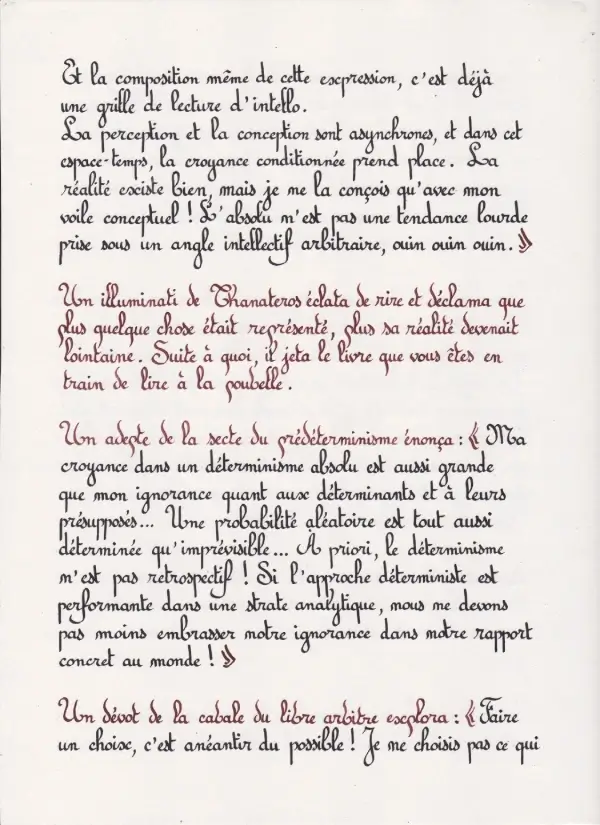 Et la composition même de cette expression, c'est déjà
une grille de lecture d'intello.
La perception et la conception sont asynchrones, et dans cet
espace-temps, la croyance conditionnée prend place. La
réalité existe bien, mais je ne la conçois qu'avec mon
voile conceptuel ! L'absolu n'est pas une tendance lourde
prise sous un angle intellectif arbitraire, ouin ouin ouin. »
Un illuminati de Thanateros éclata de rire et déclama que
plus quelque chose était représenté, plus sa réalité devenait
lointaine. Suite à quoi, il jeta le livre que vous êtes en
train de lire à la poubelle.
Un adepte de la secte du prédéterminisme énonça : « Ma
croyance dans un déterminisme absolu est aussi grande
que mon ignorance quant aux déterminants et à leurs
présupposés... Une probabilité aléatoire est tout aussi
déterminée qu'imprévisible... À priori, le déterminisme
n'est pas retrospectif ! Si l'approche déterministe est
performante dans une strate analytique, nous ne devons
pas moins embrasser notre ignorance dans notre rapport
concret au monde ! »
Un dévot de la cabale du libre arbitre explora : « Faire
un choix, c'est anéantir du possible ! Je ne choisis pas ce qui